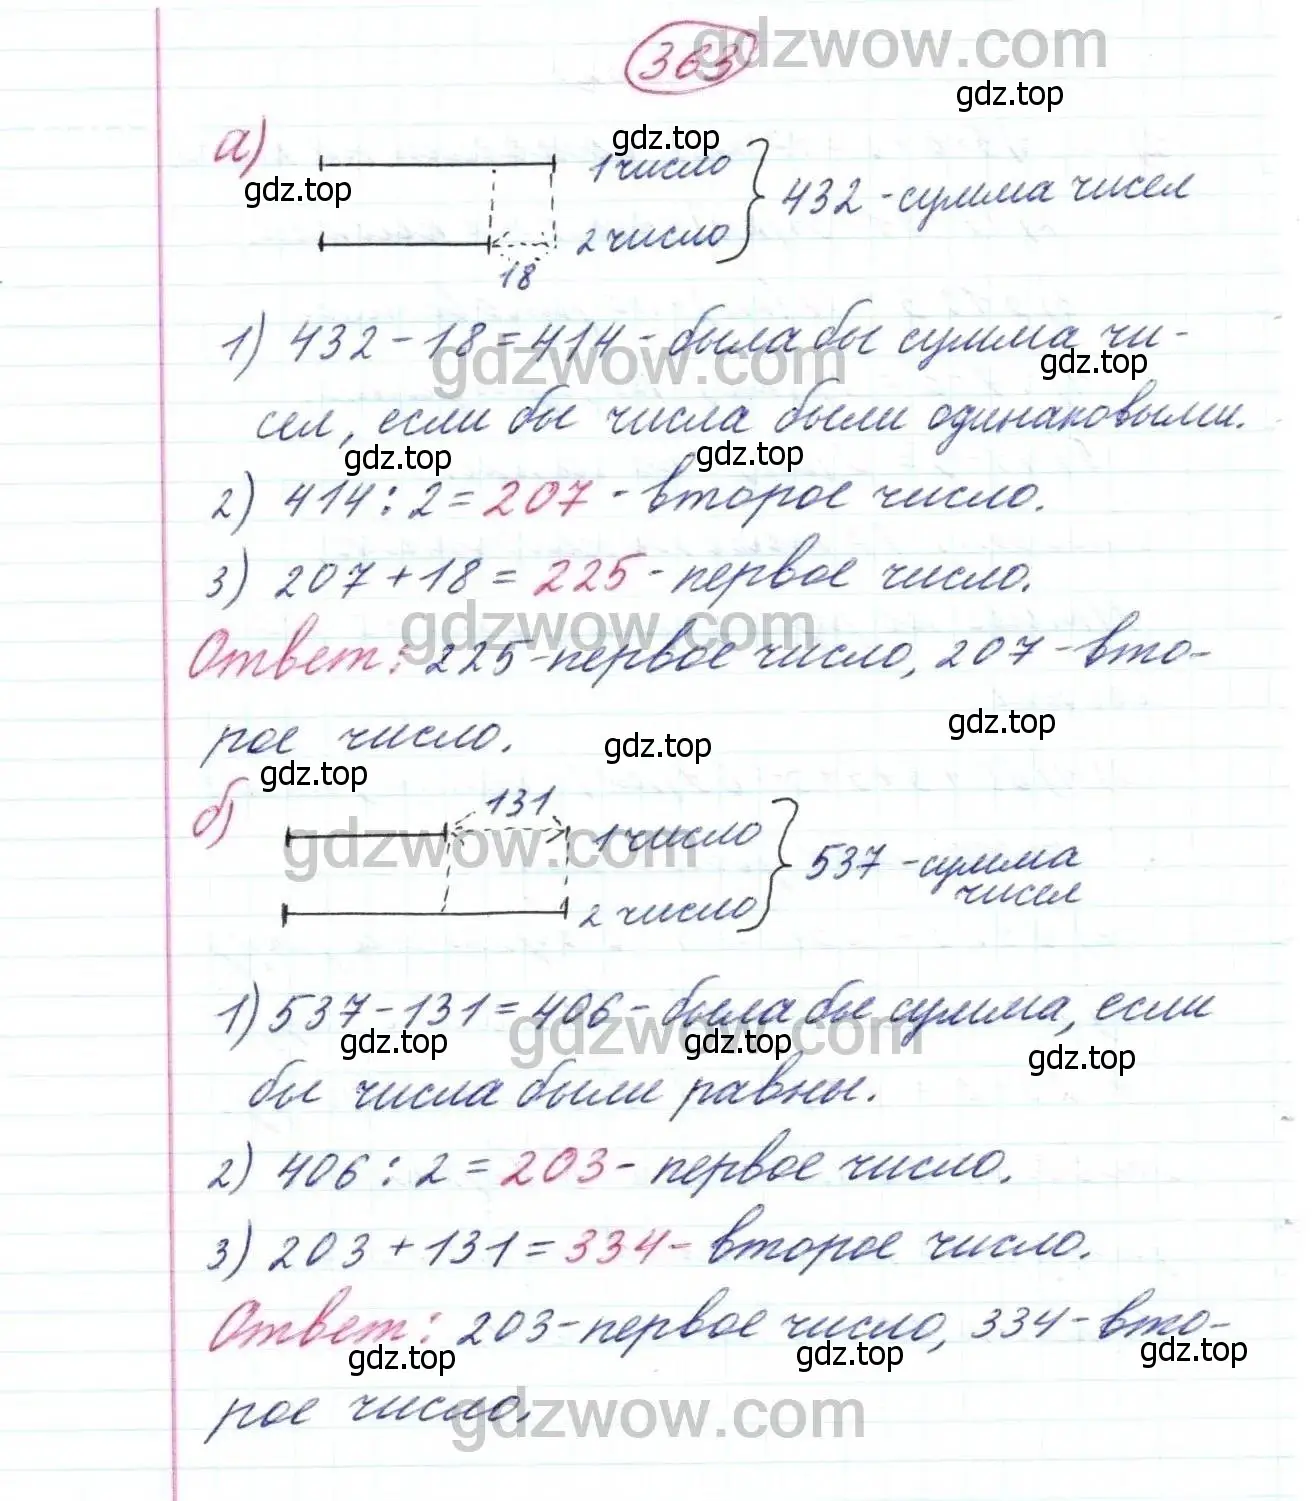 363
gdzwow.com
gdz.top
а)
gdz.top
1 число
gdz.top
432 - сумма чисел
2 число
18
1) 432 - 18 = 414 - была бы сумма чи-
gdzwow.com
gdz.top
сел, если бы числа были одинаковыми.
gdz.top
gdz.top
2) 414 : 2 = 207 - второе число.
3) 207 + 18 = 225 - первое число.
gdzwow.com
Ответ: 225 - первое число, 207 - вто-
рое число.
gdz.top
gdz.top
gdz.top
б)
131
gdzwow.com
1 число
537 - сумма
чисел
2 число
1) 537 - 131 = 406 - была бы сумма, если
gdzwow.com
gdz.top
gdz.top
gdz.top
бы числа были равны.
2) 406 : 2 = 203 - первое число.
3) 203 + 131 = 334 - второе число.
Ответ: 203 - первое число, 334 - вто-
gdz.top
gdz.top
gdz.top
рое число.
gdzwow.com